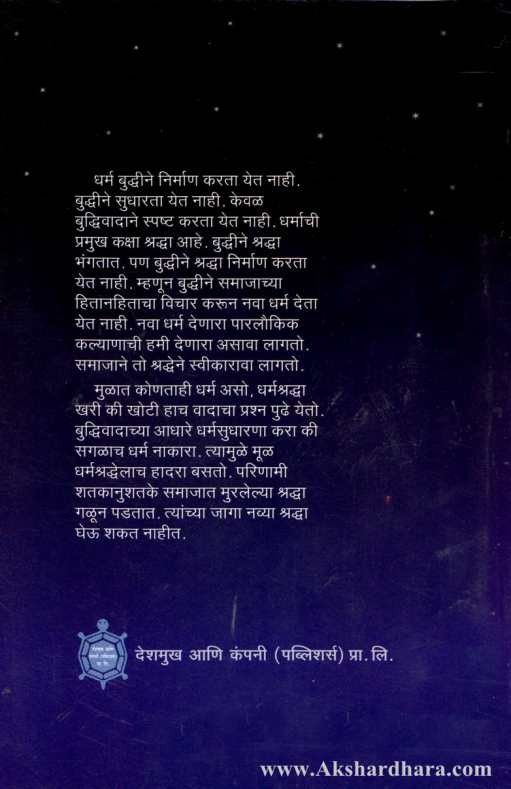 धर्म बुद्धीने निर्माण करता येत नाही.
बुद्धीने सुधारता येत नाही. केवळ
बुद्धिवादाने स्पष्ट करता येत नाही. धर्माची
प्रमुख कक्षा श्रद्धा आहे. बुद्धीने श्रद्धा
भंगतात. पण बुद्धीने श्रद्धा निर्माण करता
येत नाही. म्हणून बुद्धीने समाजाच्या
हितानहिताचा विचार करून नवा धर्म देता
येत नाही. नवा धर्म देणारा पारलौकिक
कल्याणाची हमी देणारा असावा लागतो.
समाजाने तो श्रद्धेने स्वीकारावा लागतो.
मुळात कोणताही धर्म असो, धर्मश्रद्धा
खरी की खोटी हाच वादाचा प्रश्न पुढे येतो.
बुद्धिवादाच्या आधारे धर्मसुधारणा करा की
सगळाच धर्म नाकारा. त्यामुळे मूळ
धर्मश्रद्धेलाच हादरा बसतो. परिणामी
शतकानुशतके समाजात मुरलेल्या श्रद्धा
गळून पडतात. त्यांच्या जागा नव्या श्रद्धा
घेऊ शकत नाहीत.
देशमुख आणि कंपनी (पब्लिशर्स) प्रा.लि.
www.Akshardhara.com